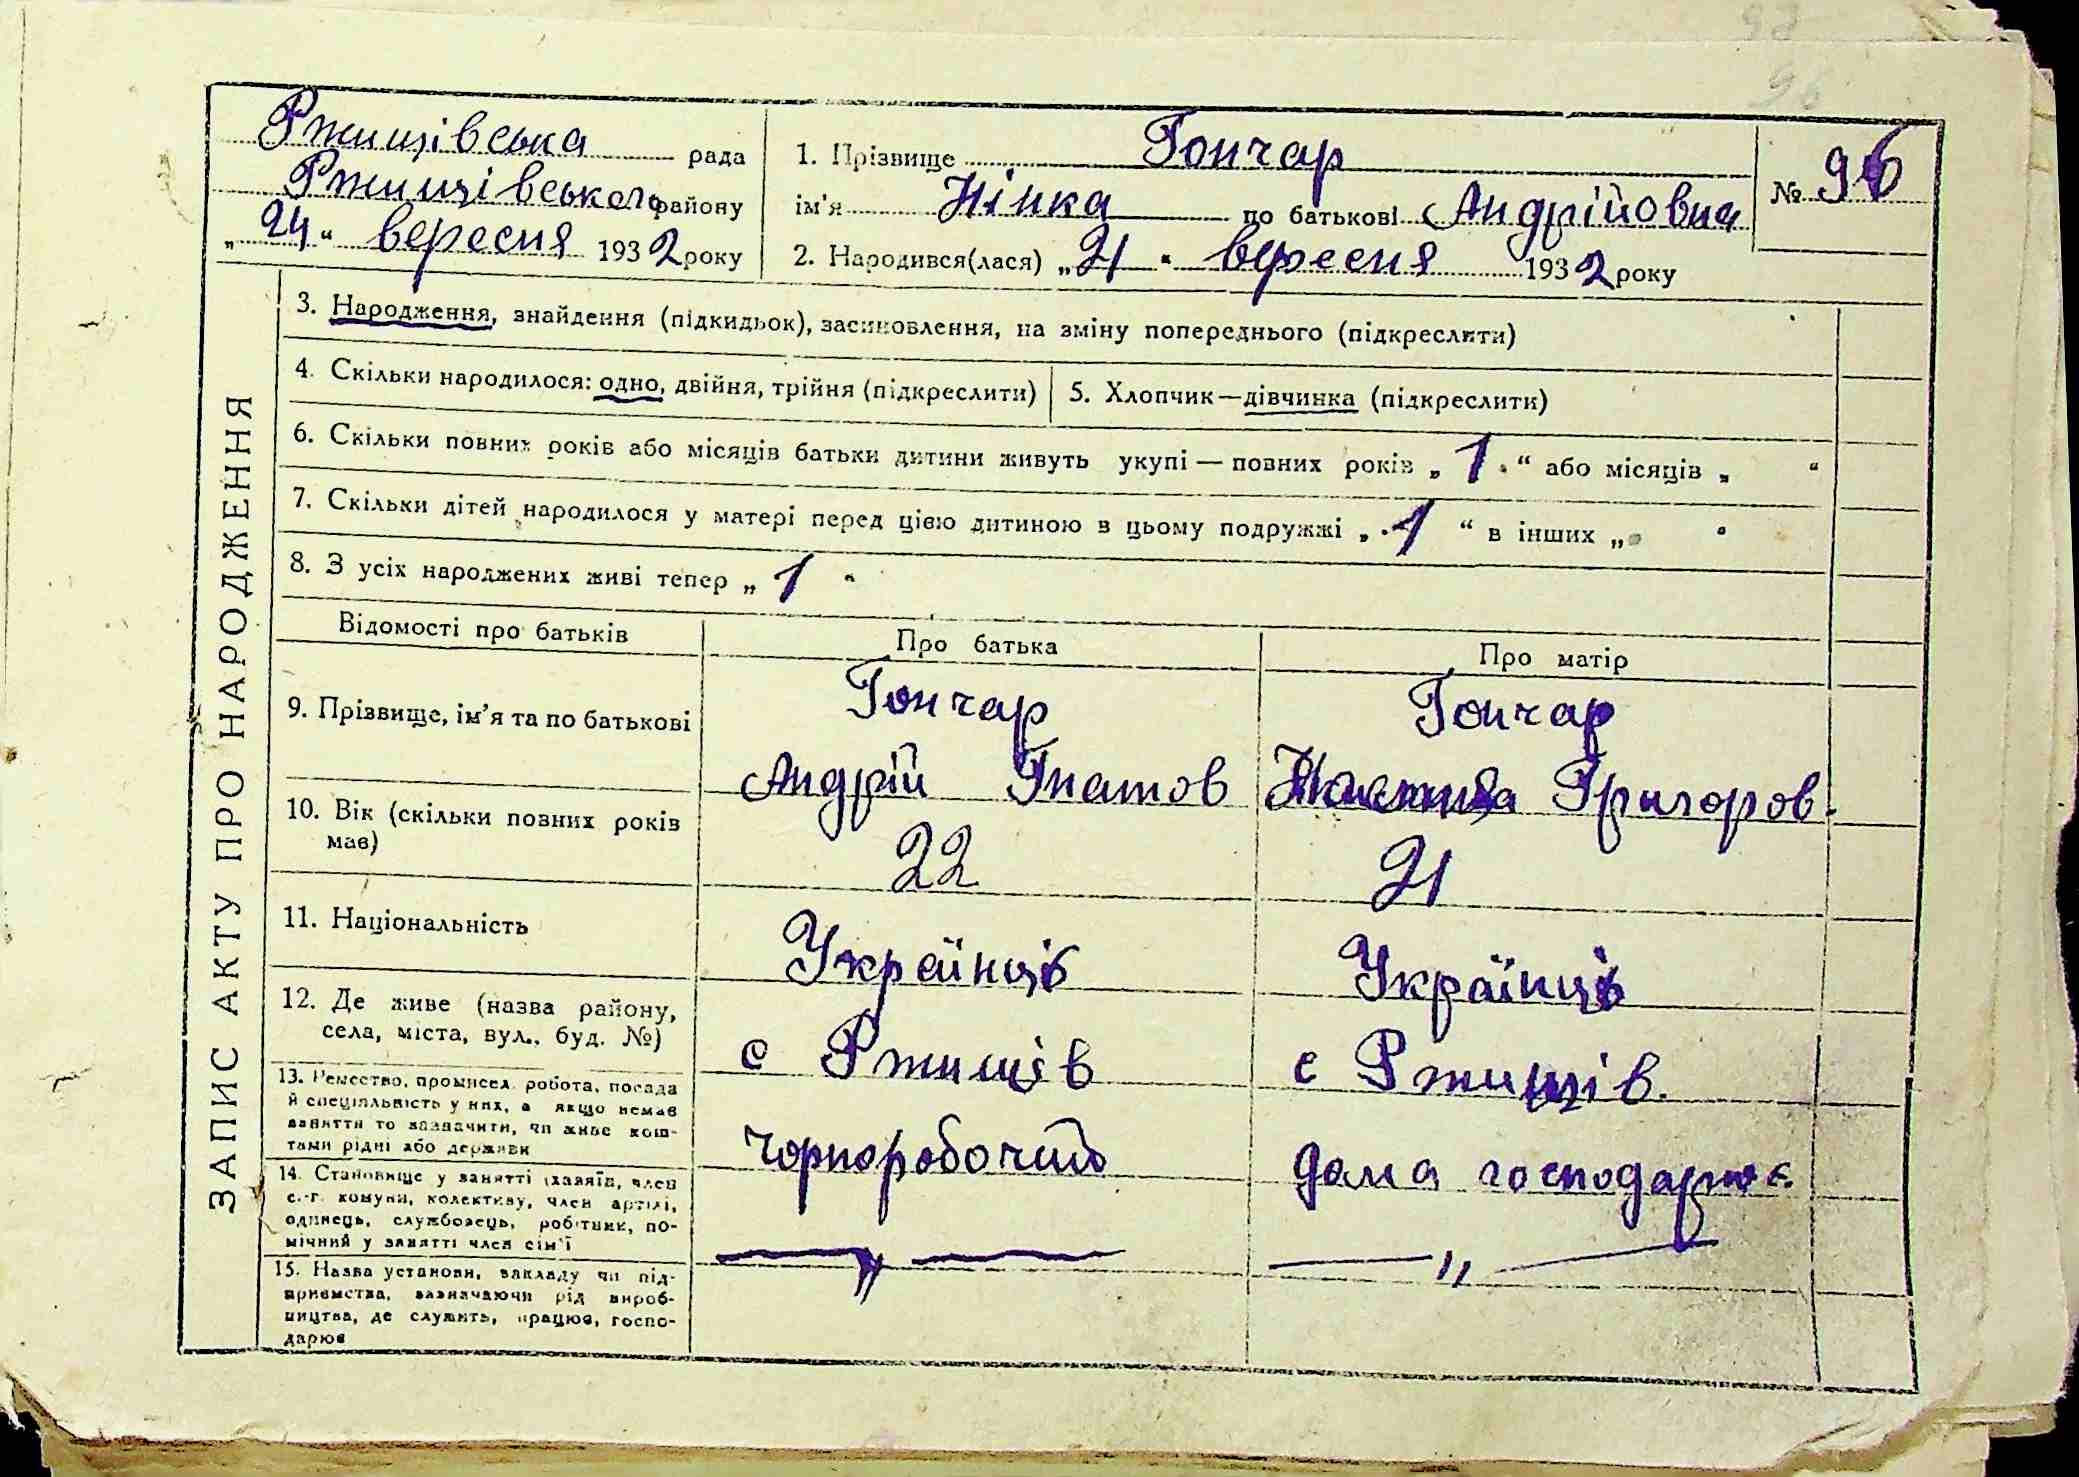 98
96
Ржищівська рада
Ржищівського району
„ 24 “ вересня 1932 року
1. Прізвище Гончар
ім'я Нінка по батькові Андрійовна
№ 96
2. Народився(лася) „ 21 “ вересня 1932 року
ЗАПИС АКТУ ПРО НАРОДЖЕННЯ
3. Народження, знайдення (підкидьок), засиновлення, на зміну попереднього (підкреслити)
4. Скільки народилося: одно, двійня, трійня (підкреслити)
5. Хлопчик—дівчинка (підкреслити)
6. Скільки повних років або місяців батьки дитини живуть укупі — повних років „ 1 “ або місяців „ “
7. Скільки дітей народилося у матері перед цією дитиною в цьому подружжі „ 1 “ в інших „ “
8. З усіх народжених живі тепер „ 1 “
Відомості про батьків
Про батька
Про матір
9. Прізвище, ім'я та по батькові
Гончар
Андрій Гнатов
Гончар
Григоров.
10. Вік (скільки повних років
має)
22
21
11. Національність
Українців
Українців
12. Де живе (назва району,
села, міста, вул., буд. №)
с Ржищів
с Ржищів.
13. Ремество, промисел, робота, посада
й спеціяльність у них, а якщо немає
заняття то зазначити, чи живе кош-
тами рідні або держави
чорноробочий
дома господарює.
14. Становище у занятті (хазяїн, член
с.-г. комуни, колективу, член артілі,
одинець, службовець, робітник, по-
мічний у занятті член сім'ї
— „ —
— „ —
15. Назва установи, закладу чи під-
приємства, зазначаючи рід вироб-
ництва, де служить, працює, госпо-
дарює